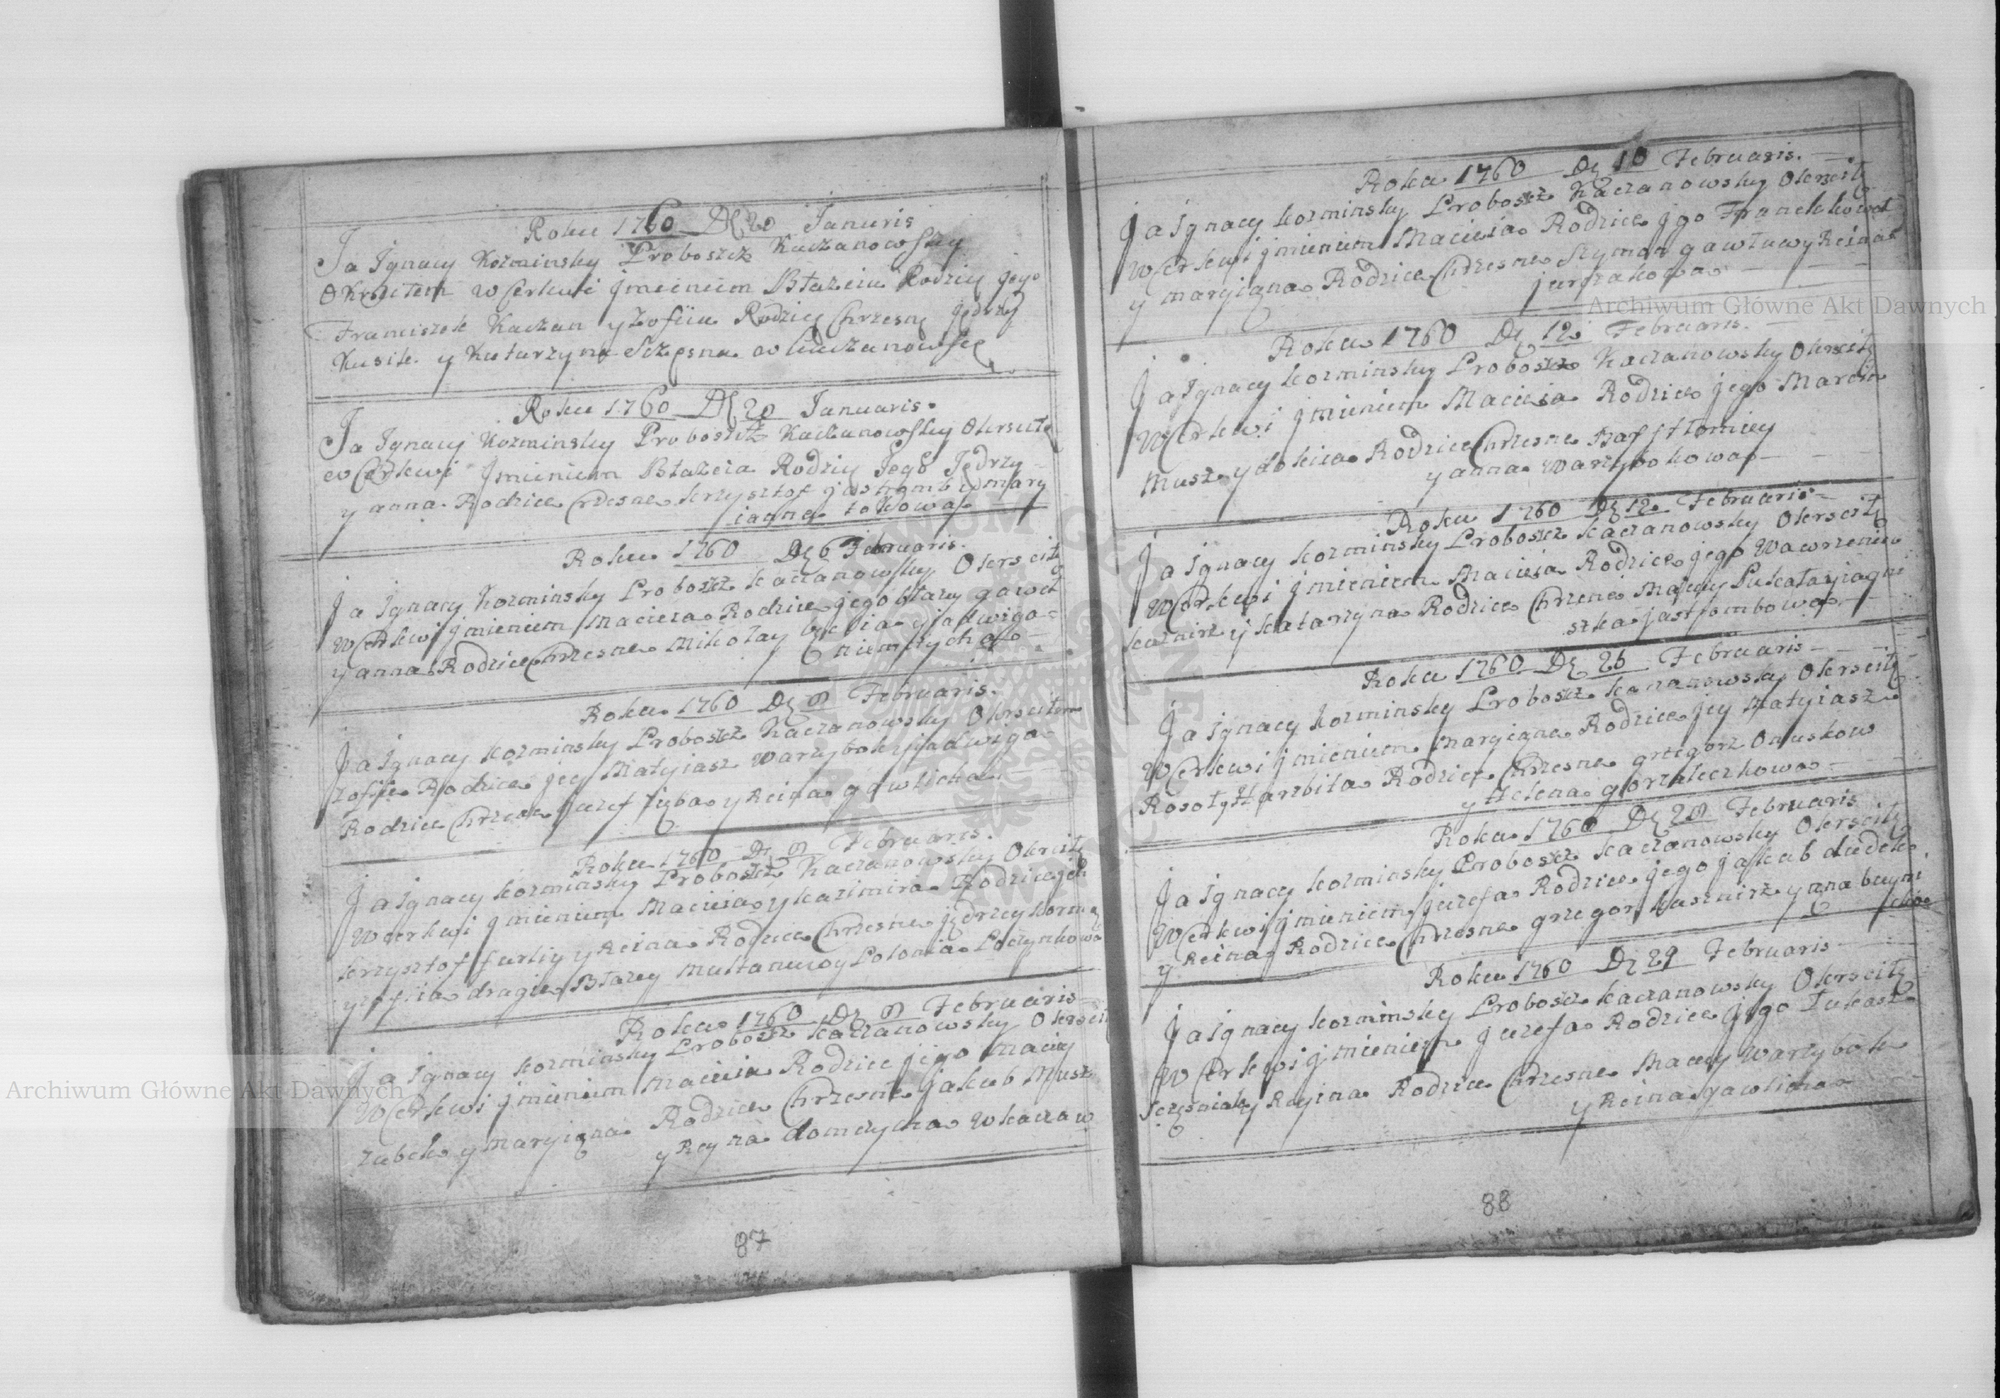 Roku 1760 D 20 Januris
Ja Jgnacy Kozminsky Proboszcz Kaczanowsky
Okrzcitem w Cerkwi jmeinium Błazeia Rodzicy jego
Franciszek Kaczan y Zofiia Rodzicy Chrzesny Jędrzy
Kusik y Katarzyna Szczęsna w Kaczanowsce
Roku 1760 D 20 Januaris
Ja Jgnacy Kozminsky Proboszcz Kaczanowsky Okrscite
w Cerkwi Jminium Błazeia Rodzicy Jego Jędrzy
y anna Rodzice Crzesne krzysztof jastrzomb y mary
ianna tokowa
Roku 1760 Dę 6 Februaris
ja Jgnacy Kozminsky Proboszcz kaczanowsky Okrscitę
w Cerkwi jmienium Macieia Rodzice jego błazy gaweł
y anna Rodzice Chrzesne Mikołay y jadwiga
niemczycha
Roku 1760 Dę 8 Februaris
ja Jgnacy kozminsky Proboszcz Kaczanowsky Okrscitem
zofije Rodzice jey Matyiasz warzybok y jadwiga
Rodzice Chrzesne juzef zięba y Reina gawlicha
Roku 1760 Dę 8 Februaris
ja jgnacy kozminsky Proboszcz Kaczanowsky Okrścitę
w Cerkwi jmieniem Macieia y kazimira Rodzice jch
krzysztof furliy y Reina Rodzice Chrzesne jędrzey
y zofiia drugie Błazey Multanuwy Polonia
Roku 1760 Dę 8 Februaris
ja jgnacy kozminsky Proboszcz kaczanowsky Okrscit
w Cerkwi jmieniem Macieia Rodzice jego Maciey
zubek y maryiąna Rodzice Chrzesne jakub Musz
y Reyna domczycha w kaczaw
87
Roku 1760 Dę 10 Februaris
ja jgnacy kozminsky Proboszcz Kaczanowsky Okrscitę
w Cerkwi jmienium Macieia Rodzice jgo Franek kowal
y maryiąna Rodzice Chrzesne Szyman gawławy Reinae
jurczakowa
Roku 1760 Dę 12 Februaris
ja jgnacy kozminsky Proboszcz Kaczanowsky Okrscitę
w Cerkwi jmieniem Macieia Rodzice jego Marcin
Musz y dokiia Rodzice Chrzesne Baftłomiey
y anna Warzybokowa
Roku 1760 Dę 12 Februaris
ja jgnacy kozminsky Proboszcz kaczanowsky Okrscitę
w Cerkwi jmieniem Macieia Rodzice jego Wawrzeniec
kusnirz y katarzyna Rodzice Chrzene Maciey jagni
szka jastrzombowa
Roku 1760 Dę 26 Februaris
ja jgnacy kozminsky Proboszcz kaczanowsky Okrscitę
w Cerkwi jmieniem Maryiąna Rodzice jey Matyiasz
Rosoły Harbita Rodzice Chrzesne grzegorz Onuskow
y Helena gorzałeczkowa
Roku 1760 Dę 28 Februaris
ja jgnacy kozminsky Proboszcz kaczanowsky Okrscitę
w Cerkwi jmieniem juzefa Rodzice jego jakub dudek
y Reina Rodzice Chrzesne grzegorz kusznirz y nna
Roku 1760 Dę 29 Februaris
ja jgnacy kozminsky Proboszcz kaczanowsky Okrscitę
w Cerkwi jmieniem juzefa Rodzice jego Łukasz
Sczęsniak y Regina Rodzice Chrzesne Maciey Warzybok
y Reina gawlicha
88
Archiwum Główne Akt Dawnych
Archiwum Główne Akt Dawnych